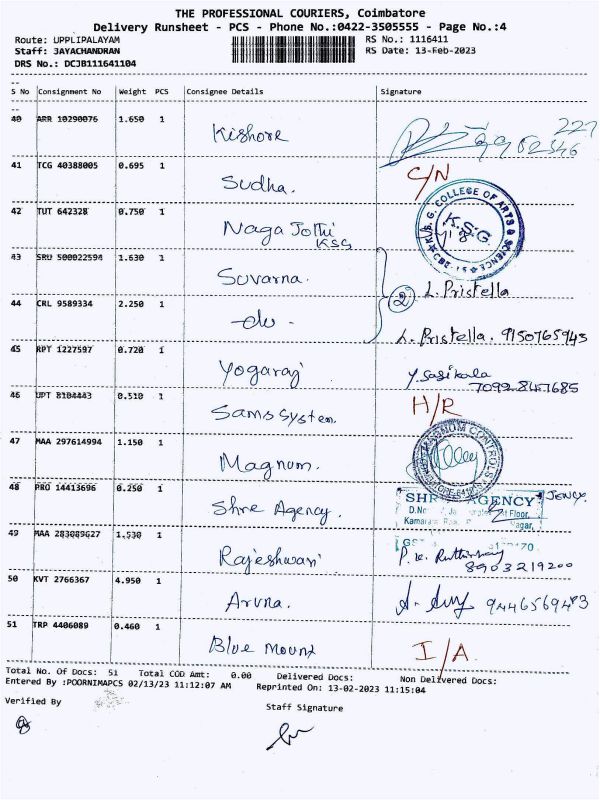 THE PROFESSIONAL COURIERS, Coimbatore
Delivery Runsheet - PCS - Phone No.:0422-3505555 - Page No.:4
Route: UPPLIPALAYAM RS No.: 1116411
Staff: JAYACHANDRAN RS Date: 13-Feb-2023
DRS No.: DCJB111641104
S No Consignment No Weight PCS Consignee Details Signature
40 ARR 10290076 1.650 1 Kishore
41 TCG 40388005 0.695 1 Sudha. C/N
42 TUT 642328 0.750 1 Naga Jothi KSG
K.S.G. COLLEGE OF ARTS & SCIENCE
K.S.G
CBE-15
43 SRU 500022594 1.630 1 Suvarna. 2 L. Pristella
44 CRL 9589334 2.250 1 -do- L. Pristella. 9150765943
45 RPT 1227597 0.720 1 Yogaraj Y. Sasikala
7092847685
46 UPT 8104443 0.510 1 Sams System. H/R
47 MAA 297614994 1.150 1 Magnum.
MAGNUM CONTROLS
48 PRO 14413696 0.250 1 Shre Agency.
SHR AGENCY
Floor,
Nagar,
49 MAA 283089627 1.530 1 Rajeshwari
8903219200
50 KVT 2766367 4.950 1 Aruna.
51 TRP 4406089 0.460 1 Blue Mount I/A.
Total No. Of Docs: 51 Total COD Amt: 0.00 Delivered Docs: Non Delivered Docs:
Entered By :POORNIMAPCS 02/13/23 11:12:07 AM Reprinted On: 13-02-2023 11:15:04
Verified By Staff Signature